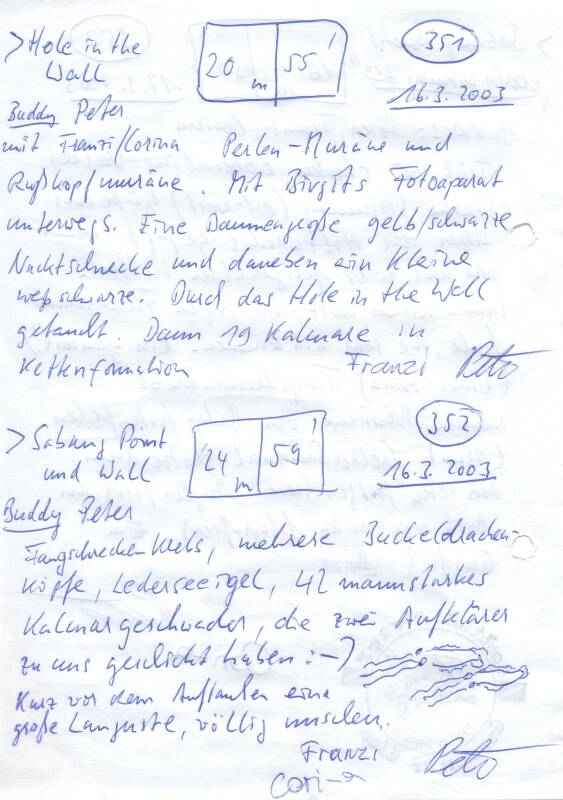 > Hole in the
Wall
20 m 55'
351
16.3.2003
Buddy Peter
mit Franzi/Corina Perlen-Muräne und
Rußkopfmuräne. Mit Birgits Fotoaparat
unterwegs. Eine Daumengroße gelb/schwarze
Nacktschnecke und daneben ein kleine
weßschwarze. Durch das Hole in the Wall
getaucht. Dann 19 Kalmare in
Kettenformation Franzi Peter
> Sabang Point
und Wall
24 m 59'
352
16.3.2003
Buddy Peter
Fangschreckenkrebs, mehrere Buckeldrachen-
köpfe, Lederseeigel, 42 mannstarkes
Kalmargeschwader, die zwei Aufklärer
zu uns geschickt haben :-)
Kurz vor dem Auftauchen eine
große Languste, völlig
Franzi Peter
Corina